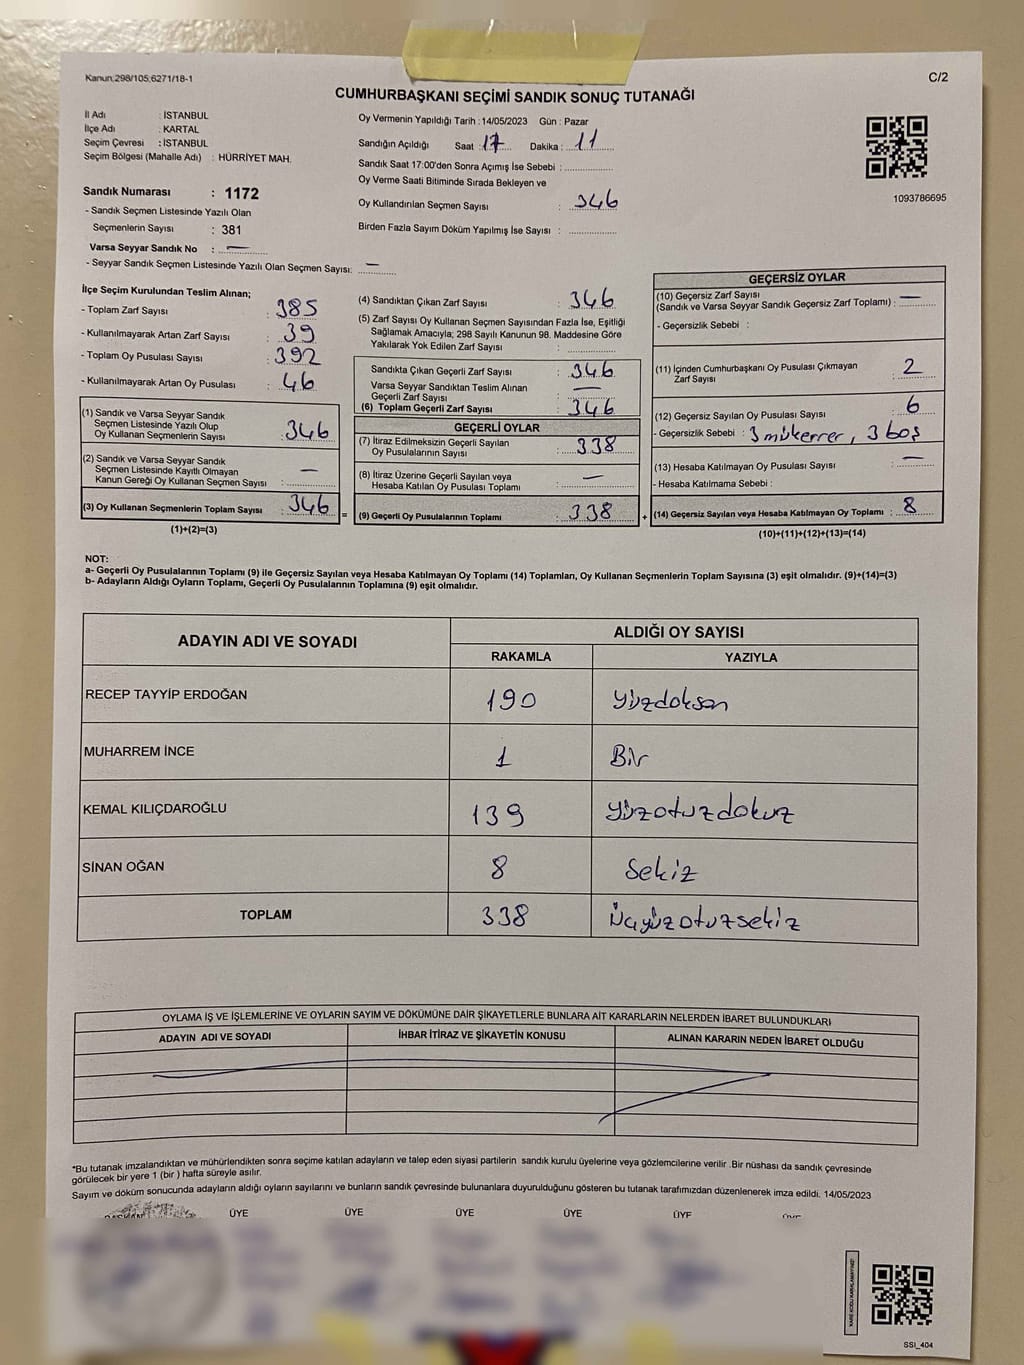 Kanun:298/105;6271/18-1
C/2
CUMHURBAŞKANI SEÇİMİ SANDIK SONUÇ TUTANAĞI
İl Adı : İSTANBUL
İlçe Adı : KARTAL
Seçim Çevresi : İSTANBUL
Seçim Bölgesi (Mahalle Adı) : HÜRRİYET MAH.
Sandık Numarası : 1172
- Sandık Seçmen Listesinde Yazılı Olan
Seçmenlerin Sayısı : 381
Varsa Seyyar Sandık No : —
- Seyyar Sandık Seçmen Listesinde Yazılı Olan Seçmen Sayısı: —
Oy Vermenin Yapıldığı Tarih : 14/05/2023 Gün : Pazar
Sandığın Açıldığı Saat : 17 Dakika : 11
Sandık Saat 17:00'den Sonra Açımış İse Sebebi :
Oy Verme Saati Bitiminde Sırada Bekleyen ve
Oy Kullandırılan Seçmen Sayısı : 346
Birden Fazla Sayım Döküm Yapılmış İse Sayısı :
1093786695
İlçe Seçim Kurulundan Teslim Alınan;
- Toplam Zarf Sayısı : 385
- Kullanılmayarak Artan Zarf Sayısı : 39
- Toplam Oy Pusulası Sayısı : 392
- Kullanılmayarak Artan Oy Pusulası : 46
(1) Sandık ve Varsa Seyyar Sandık
Seçmen Listesinde Yazılı Olup
Oy Kullanan Seçmenlerin Sayısı : 346
(2) Sandık ve Varsa Seyyar Sandık
Seçmen Listesinde Kayıtlı Olmayan
Kanun Gereği Oy Kullanan Seçmen Sayısı : —
(3) Oy Kullanan Seçmenlerin Toplam Sayısı : 346
(1)+(2)=(3)
(4) Sandıktan Çıkan Zarf Sayısı : 346
(5) Zarf Sayısı Oy Kullanan Seçmen Sayısından Fazla İse, Eşitliği
Sağlamak Amacıyla; 298 Sayılı Kanunun 98. Maddesine Göre
Yakılarak Yok Edilen Zarf Sayısı :
Sandıkta Çıkan Geçerli Zarf Sayısı : 346
Varsa Seyyar Sandıktan Teslim Alınan
Geçerli Zarf Sayısı : —
(6) Toplam Geçerli Zarf Sayısı : 346
GEÇERLİ OYLAR
(7) İtiraz Edilmeksizin Geçerli Sayılan
Oy Pusulalarının Sayısı : 338
(8) İtiraz Üzerine Geçerli Sayılan veya
Hesaba Katılan Oy Pusulası Toplamı : —
= (9) Geçerli Oy Pusulalarının Toplamı : 338
GEÇERSİZ OYLAR
(10) Geçersiz Zarf Sayısı
(Sandık ve Varsa Seyyar Sandık Geçersiz Zarf Toplamı) : —
- Geçersizlik Sebebi :
(11) İçinden Cumhurbaşkanı Oy Pusulası Çıkmayan
Zarf Sayısı : 2
(12) Geçersiz Sayılan Oy Pusulası Sayısı : 6
- Geçersizlik Sebebi : 3 mükerrer, 3 boş
(13) Hesaba Katılmayan Oy Pusulası Sayısı : —
- Hesaba Katılmama Sebebi :
+ (14) Geçersiz Sayılan veya Hesaba Katılmayan Oy Toplamı : 8
(10)+(11)+(12)+(13)=(14)
NOT:
a- Geçerli Oy Pusulalarının Toplamı (9) ile Geçersiz Sayılan veya Hesaba Katılmayan Oy Toplamı (14) Toplamları, Oy Kullanan Seçmenlerin Toplam Sayısına (3) eşit olmalıdır. (9)+(14)=(3)
b- Adayların Aldığı Oyların Toplamı, Geçerli Oy Pusulalarının Toplamına (9) eşit olmalıdır.
ADAYIN ADI VE SOYADI
ALDIĞI OY SAYISI
RAKAMLA YAZIYLA
RECEP TAYYİP ERDOĞAN 190 Yüzdoksan
MUHARREM İNCE 1 Bir
KEMAL KILIÇDAROĞLU 139 Yüzotuzdokuz
SİNAN OĞAN 8 Sekiz
TOPLAM 338 Üçyüzotuzsekiz
OYLAMA İŞ VE İŞLEMLERİNE VE OYLARIN SAYIM VE DÖKÜMÜNE DAİR ŞİKAYETLERLE BUNLARA AİT KARARLARIN NELERDEN İBARET BULUNDUKLARI
ADAYIN ADI VE SOYADI İHBAR İTİRAZ VE ŞİKAYETİN KONUSU ALINAN KARARIN NEDEN İBARET OLDUĞU
*Bu tutanak imzalandıktan ve mühürlendikten sonra seçime katılan adayların ve talep eden siyasi partilerin sandık kurulu üyelerine veya gözlemcilerine verilir .Bir nüshası da sandık çevresinde
görülecek bir yere 1 (bir ) hafta süreyle asılır.
Sayım ve döküm sonucunda adayların aldığı oyların sayılarını ve bunların sandık çevresinde bulunanlara duyurulduğunu gösteren bu tutanak tarafımızdan düzenlenerek imza edildi. 14/05/2023
BAŞKAN ÜYE ÜYE ÜYE ÜYE ÜYE
SSI_404